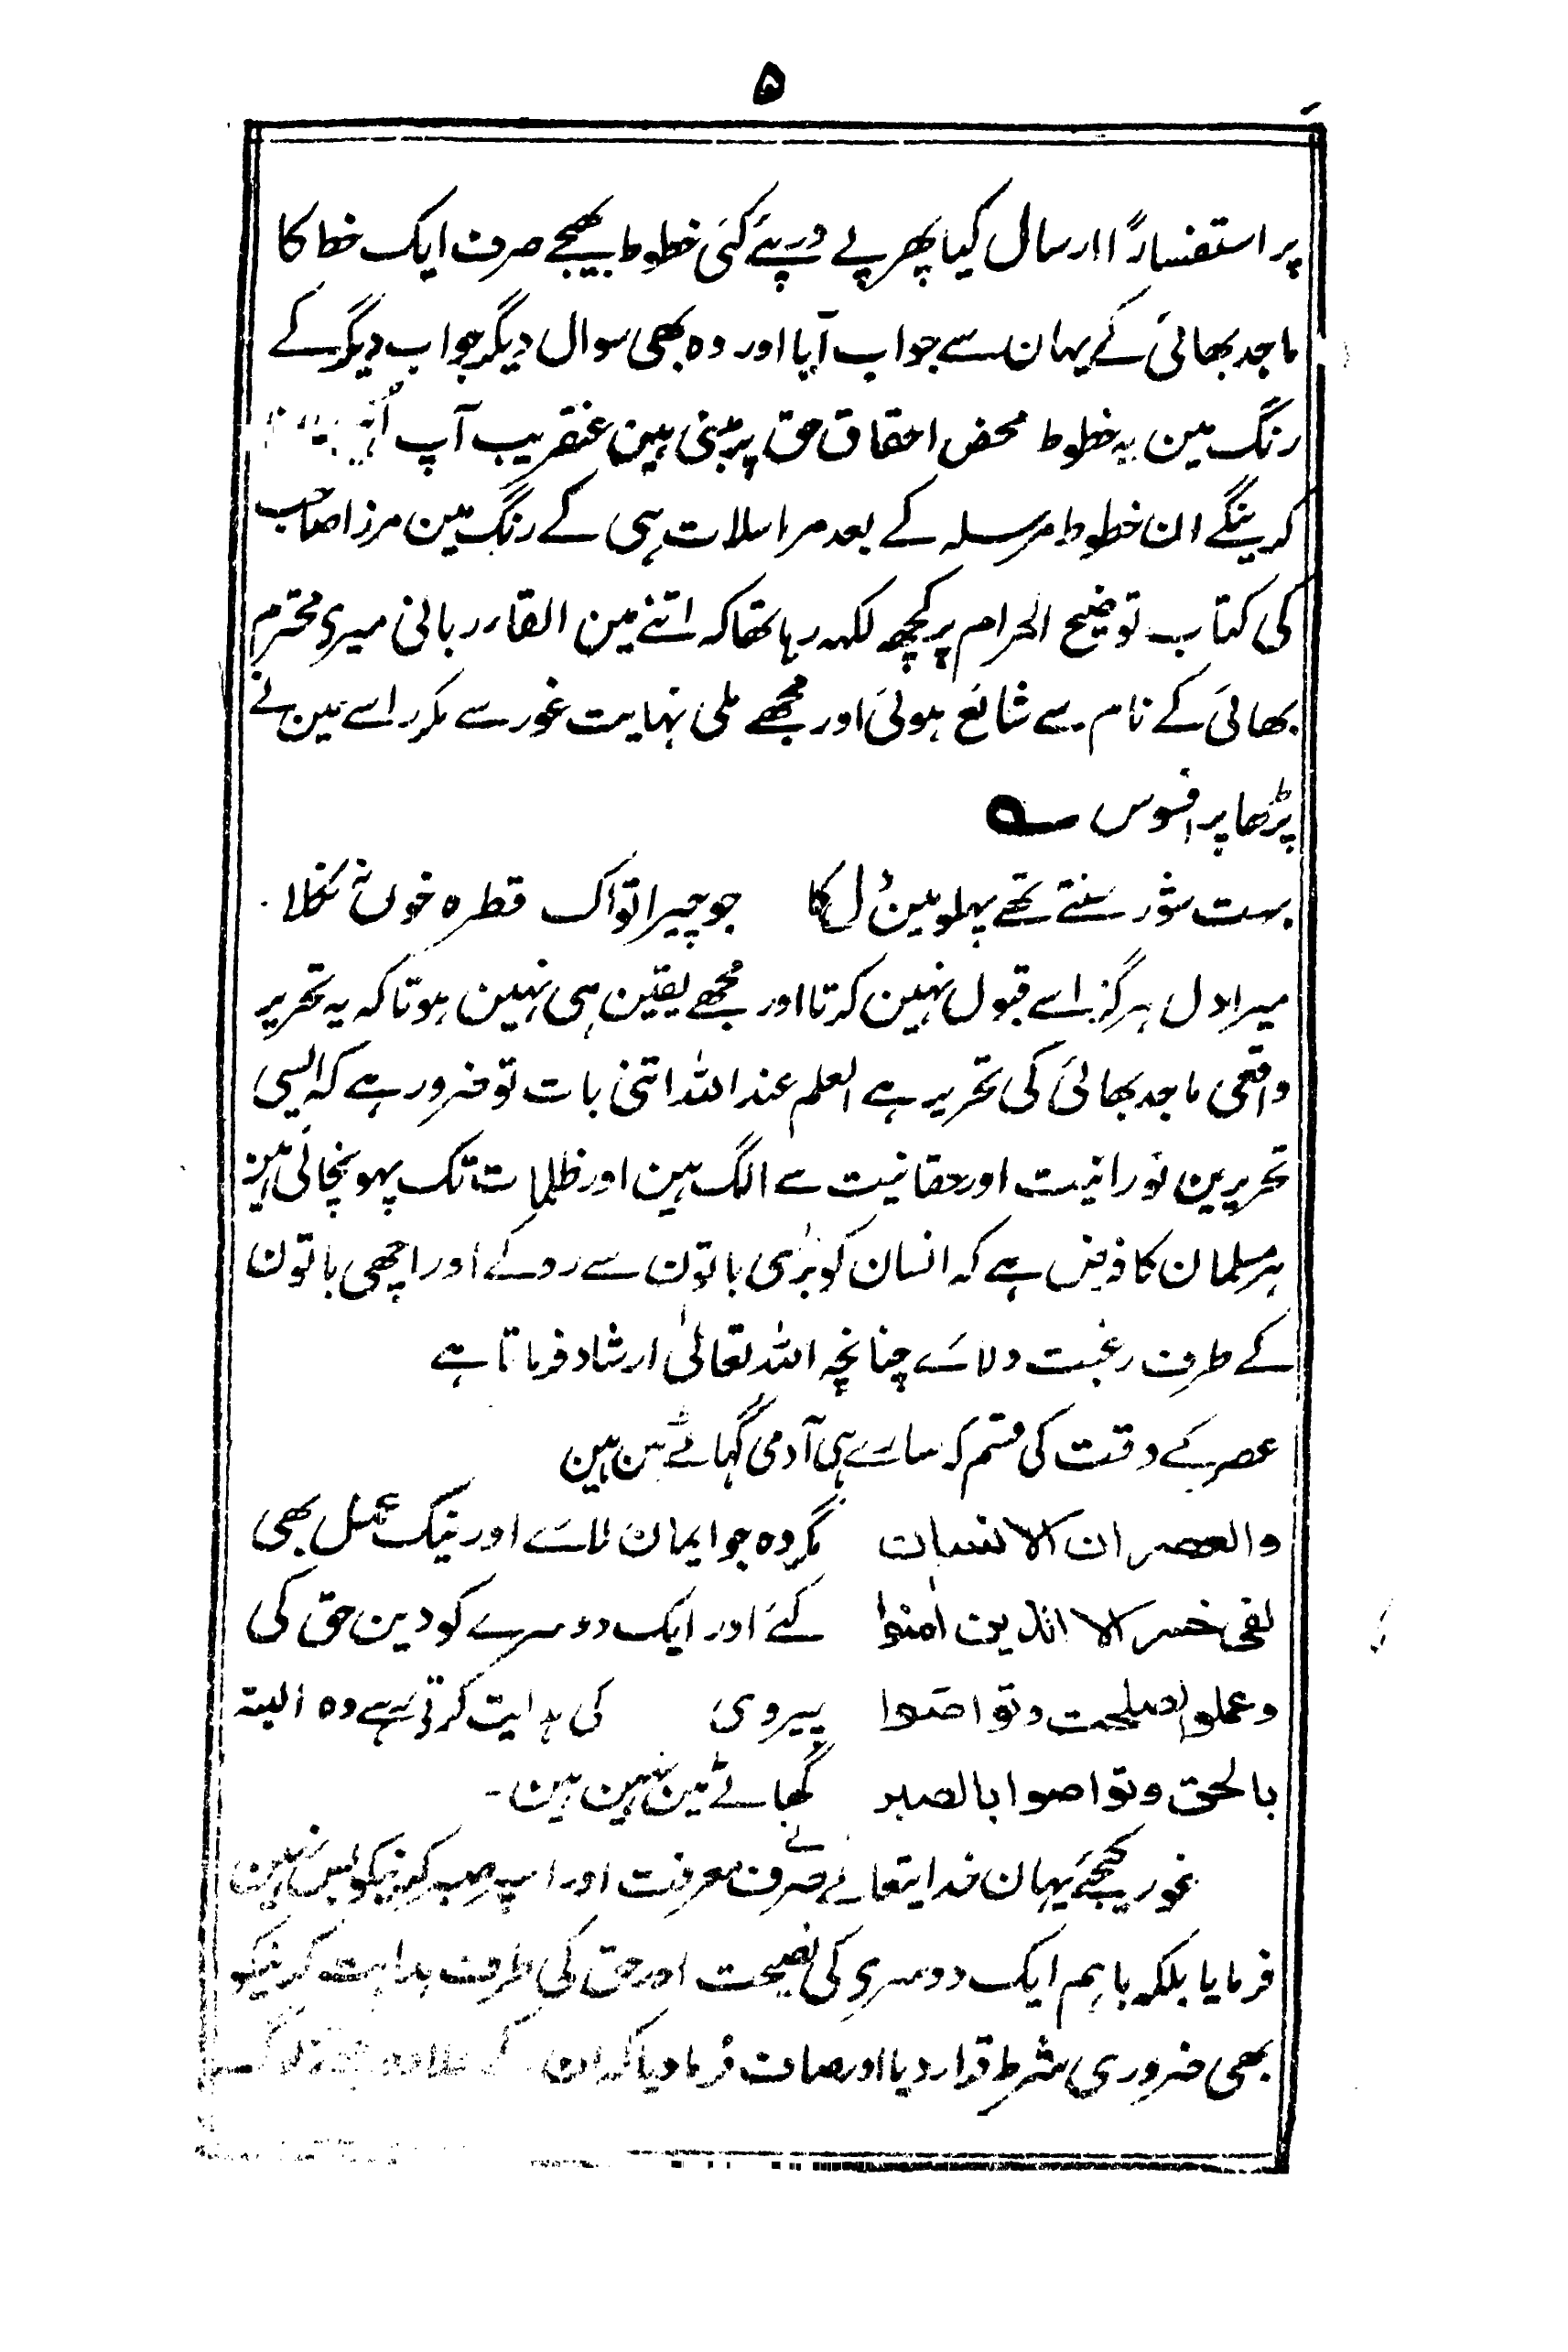 ۵
پر استفساراً ارسال کیا پھر پے درپئے کئی خطوط بھیجے صرف ایک خط کا
ماجد بھائی کے یہان سے جواب آیا اور وہ بھی سوال دیگر جواب دیگر کے
رنگ مین یہ خطوط محض احقاق حق پر مبنی ہین عنقریب آپ
کرینگے ان خطوط مرسلہ کے بعد مراسلات ہی کے رنگ مین مرزا صاحب
کی کتاب توضیح المرام پر کچھ لکہہ رہا تھا کہ اتنے مین القاء ربانی میرے محترم
بھائی کے نام سے شائع ہوئی اور مجھے ملی نہایت غور سے مکرر اسے مین نے
پڑھا پر افسوس ؎
بہت شور سنتے تھے پہلو مین دل کا جو چیرا تو اک قطرہ خون نہ نکلا
میرا دل ہرگز اسے قبول نہین کرتا اور مجھے یقین ہی نہین ہوتا کہ یہ تحریر
واقعی ماجد بھائی کی تحریر ہے العلم عند اللہ اتنی بات تو ضرور ہے کہ ایسی
تحریرین نورانیت اور حقانیت سے الگ ہین اور ظلمات تک پہونچاتی ہین
ہر مسلمان کا فرض ہے کہ انسان کو بُری باتون سے روکے اور اچھی باتون
کے طرف رغبت دلائے چنانچہ اللہ تعالیٰ ارشاد فرماتا ہے
عصر کے وقت کی قسم کہ سارے ہی آدمی گہاٹے مین ہین
والعصر ان الانسان مگر وہ جو ایمان لائے اور نیک عمل بھی
لفی خسر الا الذین اٰمنوا کئے اور ایک دوسرے کو دین حق کی
وعملوا لصلحت وتواصوا پیروی کی ہدایت کرتے رہے وہ البتہ
بالحق وتواصوا بالصبر گھاٹے مین نہین ہین -
غور کیجئے یہان خدایتعالے نے صرف معرفت اور اسپر صبر کرنیکو بس نہین
فرمایا بلکہ باہم ایک دوسرے کی نصیحت اور حق کی طرف ہدایت کرنیکو
بھی ضروری شرط قرار دیا اور صاف فرما دیا کہ ان کے علاوہ